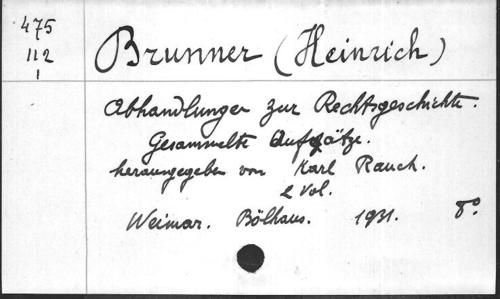 475
112
1
Brunner (Heinrich)
Abhandlungen zur Rechtsgeschichte.
Gesammelte Aufsätze.
herausgegeben von Karl Rauch.
2 Vol.
Weimar. Bölhaus. 1931. 8°